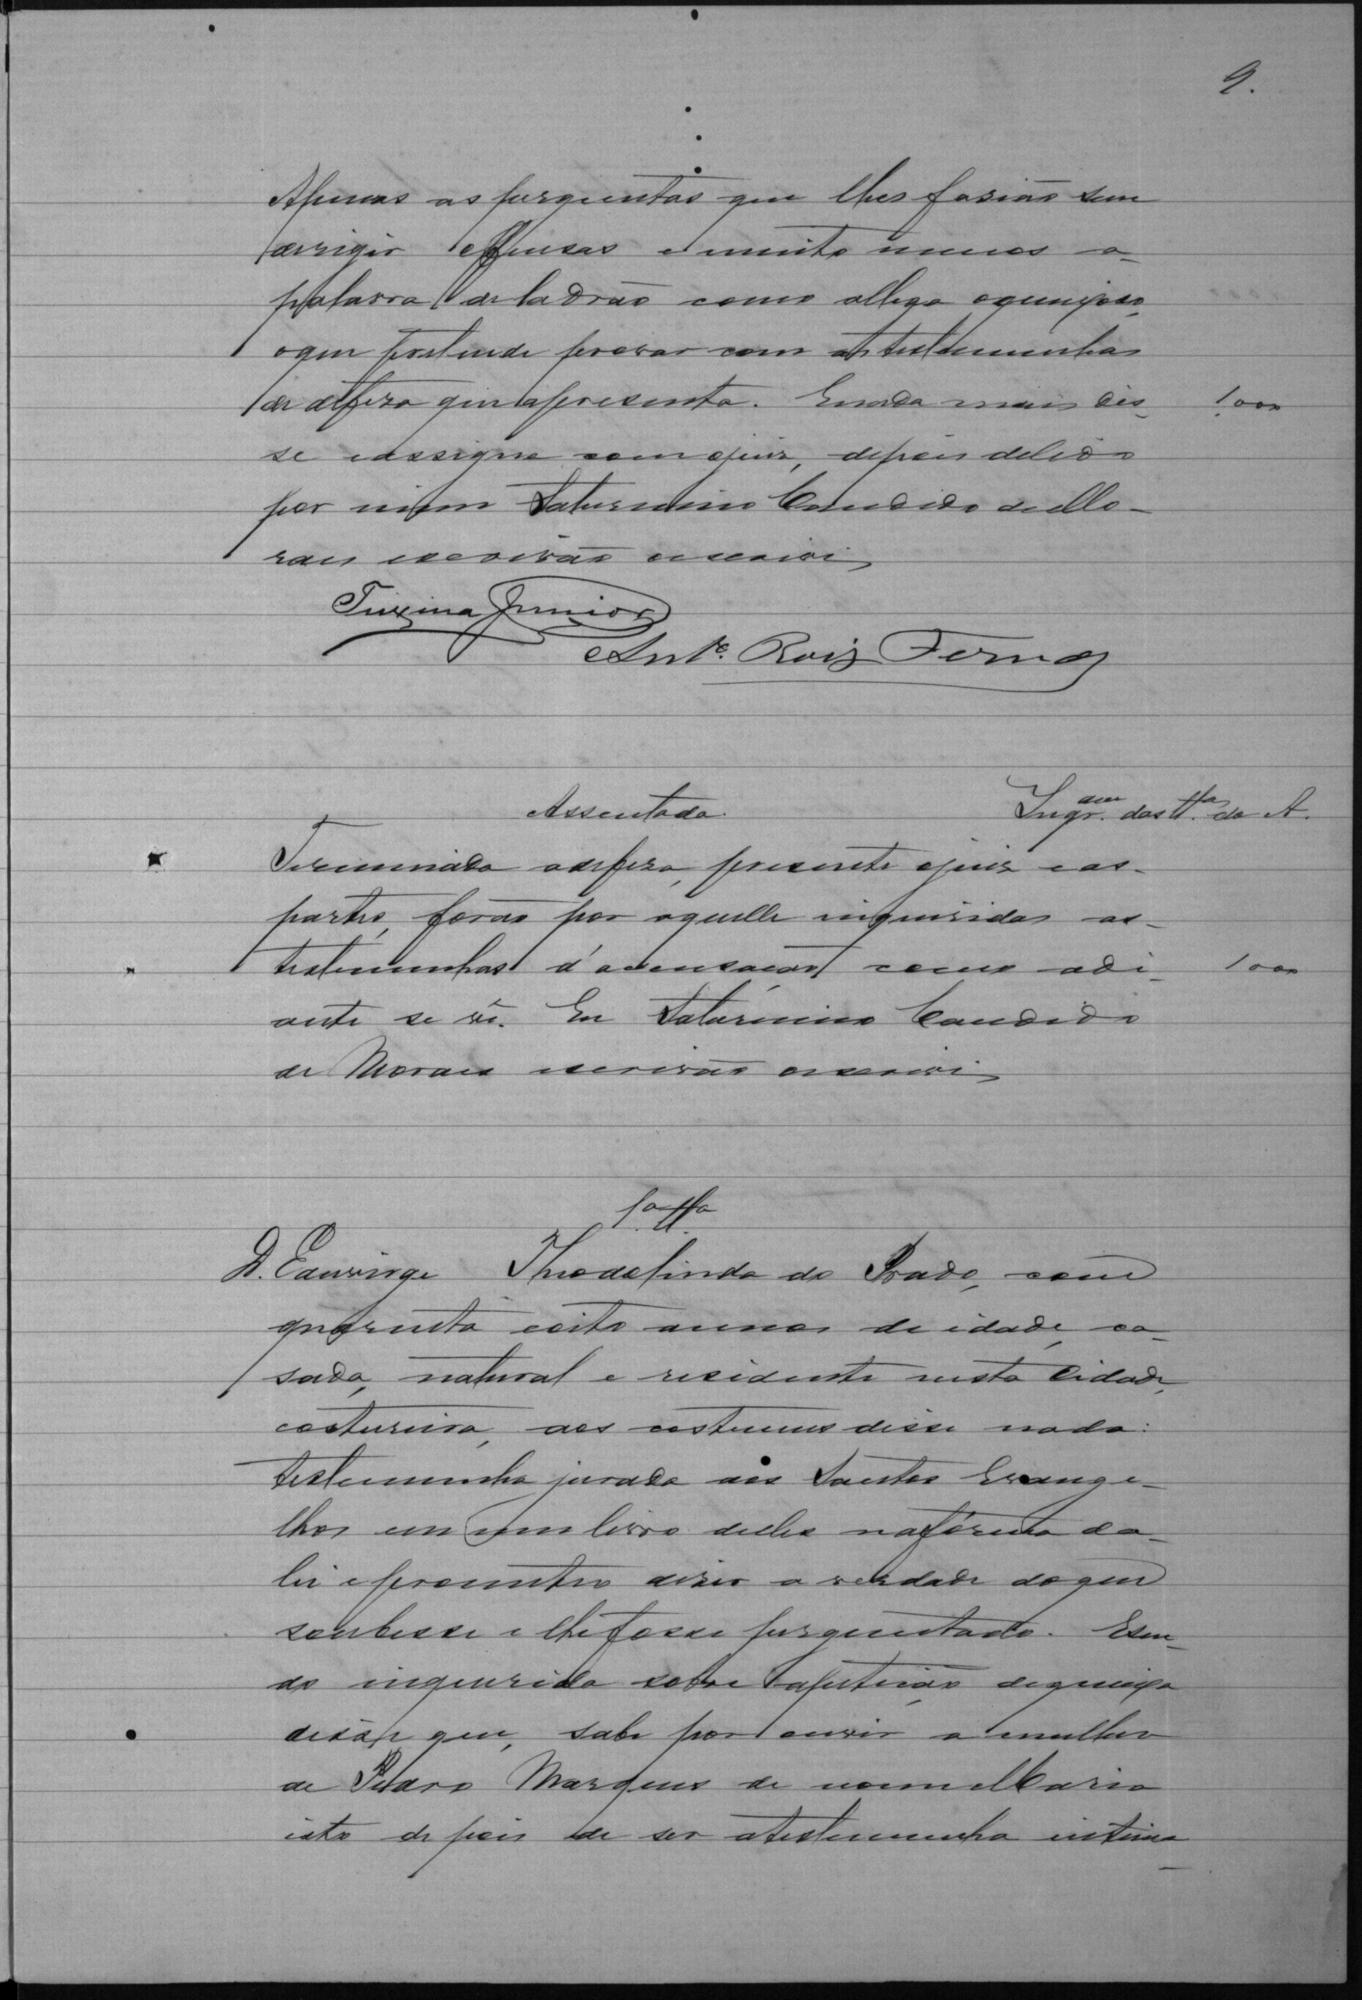 9.
Apenas as perguntas que lhes fasião sem
dirigir offensas e muito menos a
palavra de ladrão como allega o queixoso,
o que pretende provar com as testemunhas
de defeza que apresenta. E nada mais dis-
1000
se e assigna com o juiz, depois de lido
por mim Saturnino Candido de Mo-
raes escrivão o escrevi
Teixeira Junior
Antº. Roiz Fernds
Assentada
Inqr.am das ttas. da A.
Terminada a defeza, presente o juiz e as
partes, forão por aquelle inqueridas as
testemunhas d'accusação como adi-
1000
ante se vê. Eu Saturnino Candido
de Moraes escrivão o escrevi
1a tta
D. Eduwirge Theodolinda do Prado, com
quarenta e oito annos de idade, ca-
sada, natural e residente nesta Cidade,
costureira, aos costumes disse nada:
testemunha jurada aos Santos Evange-
lhos em um livro delles na forma da
lei e prometteo diser a verdade do que
soubesse e lhe fosse perguntado. E sen-
do inquerida sobre a petição de queixa
disse que, sabe por ouvir a mulher
de Pedro Marques de nome Maria
isto depois de ser a testemunha intima